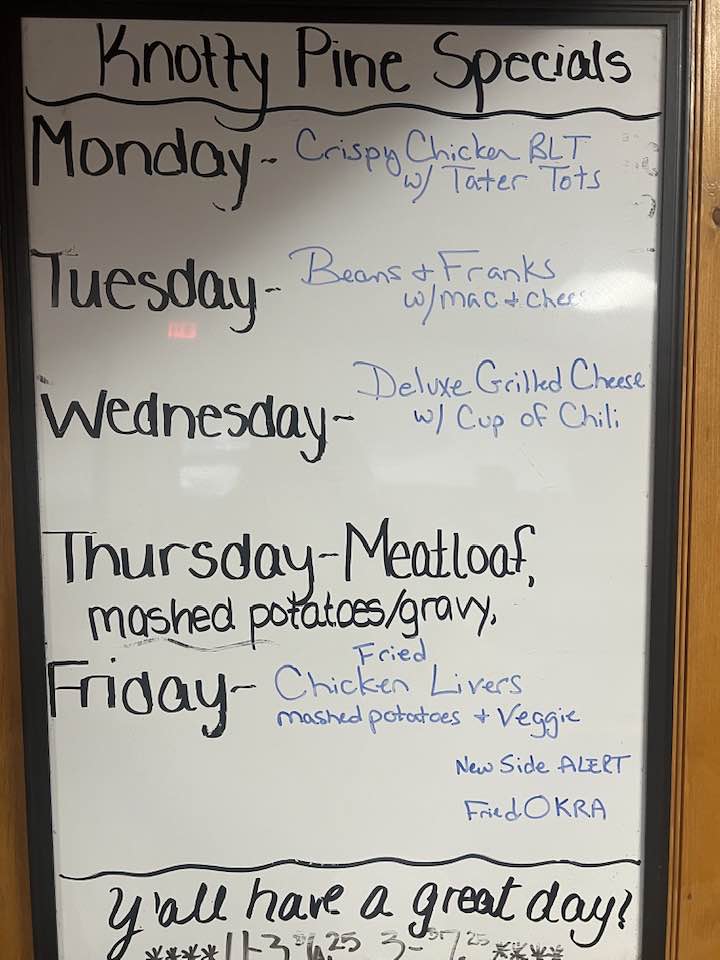 Knotty Pine Specials
Monday- Crispy Chicken BLT
w/ Tater Tots
Tuesday- Beans + Franks
w/ mac + chees
Wednesday- Deluxe Grilled Cheese
w/ Cup of Chili
Thursday-Meatloaf,
mashed potatoes/gravy,
Friday- Fried
Chicken Livers
mashed potatoes + Veggie
New Side ALERT
Fried OKRA
Y'all have a great day!
**** 11-3 $6.25 3- $7.25 ****